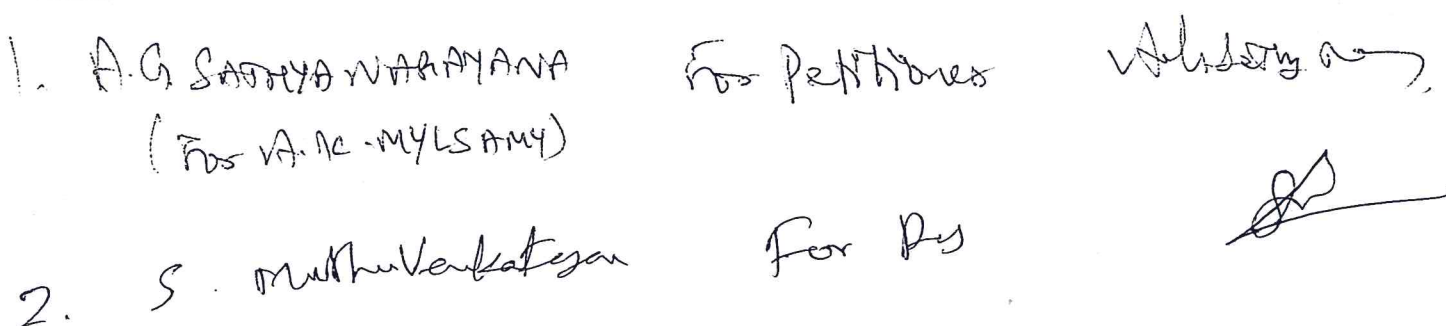 1. A.G SATHYANARAYANA For Petitioner
(For A.K. MYLSAMY)
2. S. Muthuvenkatesan For